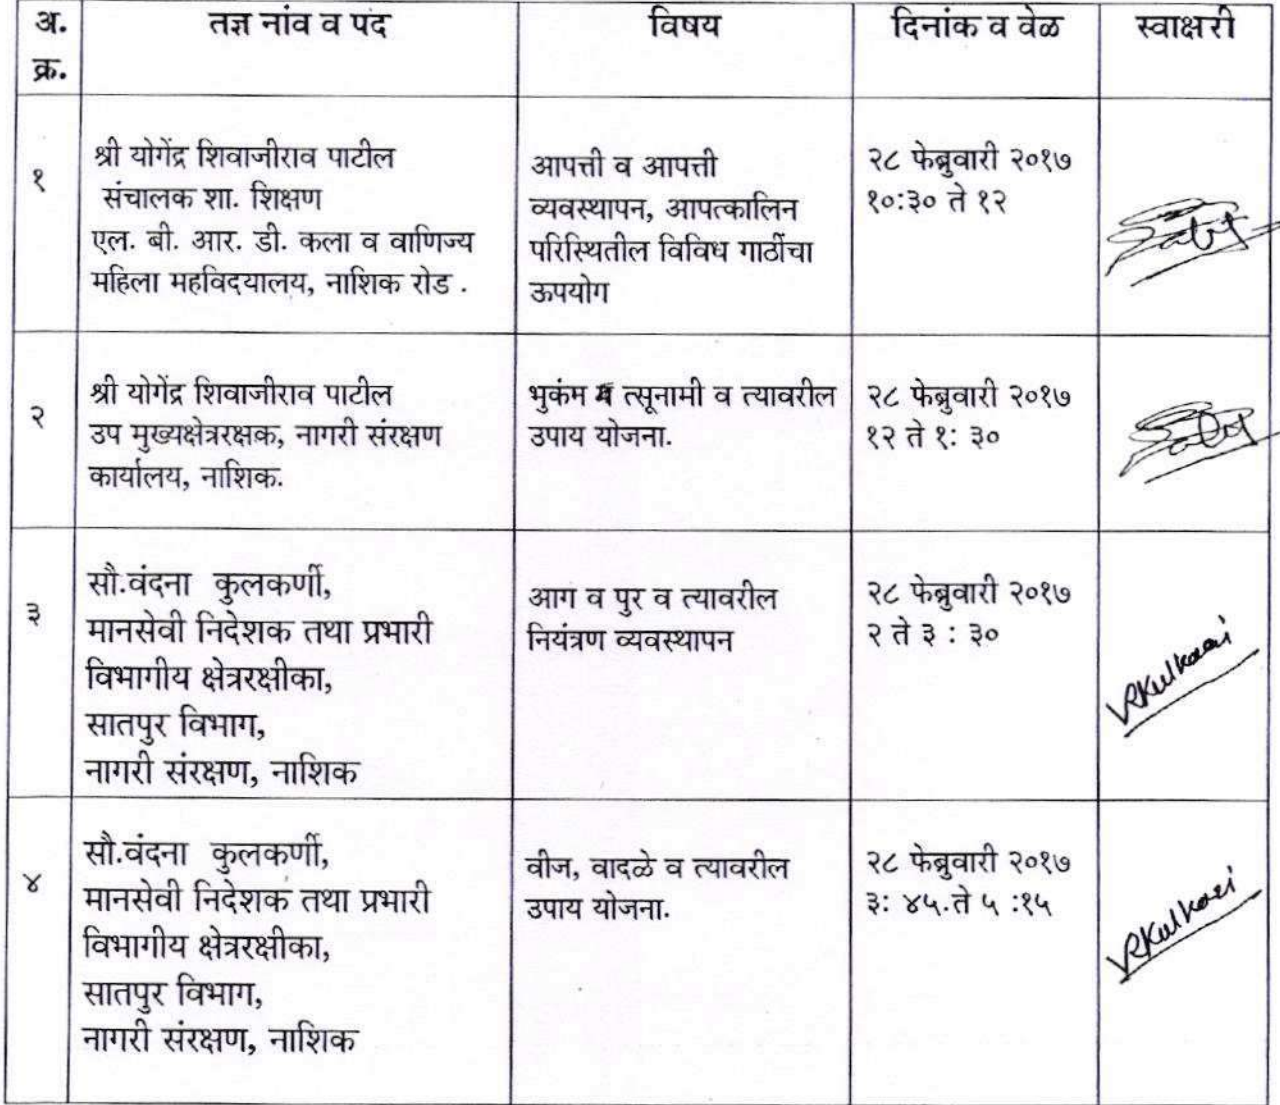 अ. तज्ञ नांव व पद विषय दिनांक व वेळ स्वाक्षरी
क्र.
१
श्री योगेंद्र शिवाजीराव पाटील
संचालक शा. शिक्षण
एल. बी. आर. डी. कला व वाणिज्य
महिला महविदयालय, नाशिक रोड .
आपत्ती व आपत्ती
व्यवस्थापन, आपत्कालिन
परिस्थितील विविध गाठींचा
ऊपयोग
२८ फेब्रुवारी २०१७
१०:३० ते १२
२
श्री योगेंद्र शिवाजीराव पाटील
उप मुख्यक्षेत्ररक्षक, नागरी संरक्षण
कार्यालय, नाशिक.
भुकंम त्सूनामी व त्यावरील
उपाय योजना.
२८ फेब्रुवारी २०१७
१२ ते १: ३०
३
सौ.वंदना कुलकर्णी,
मानसेवी निदेशक तथा प्रभारी
विभागीय क्षेत्ररक्षीका,
सातपुर विभाग,
नागरी संरक्षण, नाशिक
आग व पुर व त्यावरील
नियंत्रण व्यवस्थापन
२८ फेब्रुवारी २०१७
२ ते ३ : ३०
VRKulkarni
४
सौ.वंदना कुलकर्णी,
मानसेवी निदेशक तथा प्रभारी
विभागीय क्षेत्ररक्षीका,
सातपुर विभाग,
नागरी संरक्षण, नाशिक
वीज, वादळे व त्यावरील
उपाय योजना.
२८ फेब्रुवारी २०१७
३: ४५.ते ५ :१५
VRKulkarni